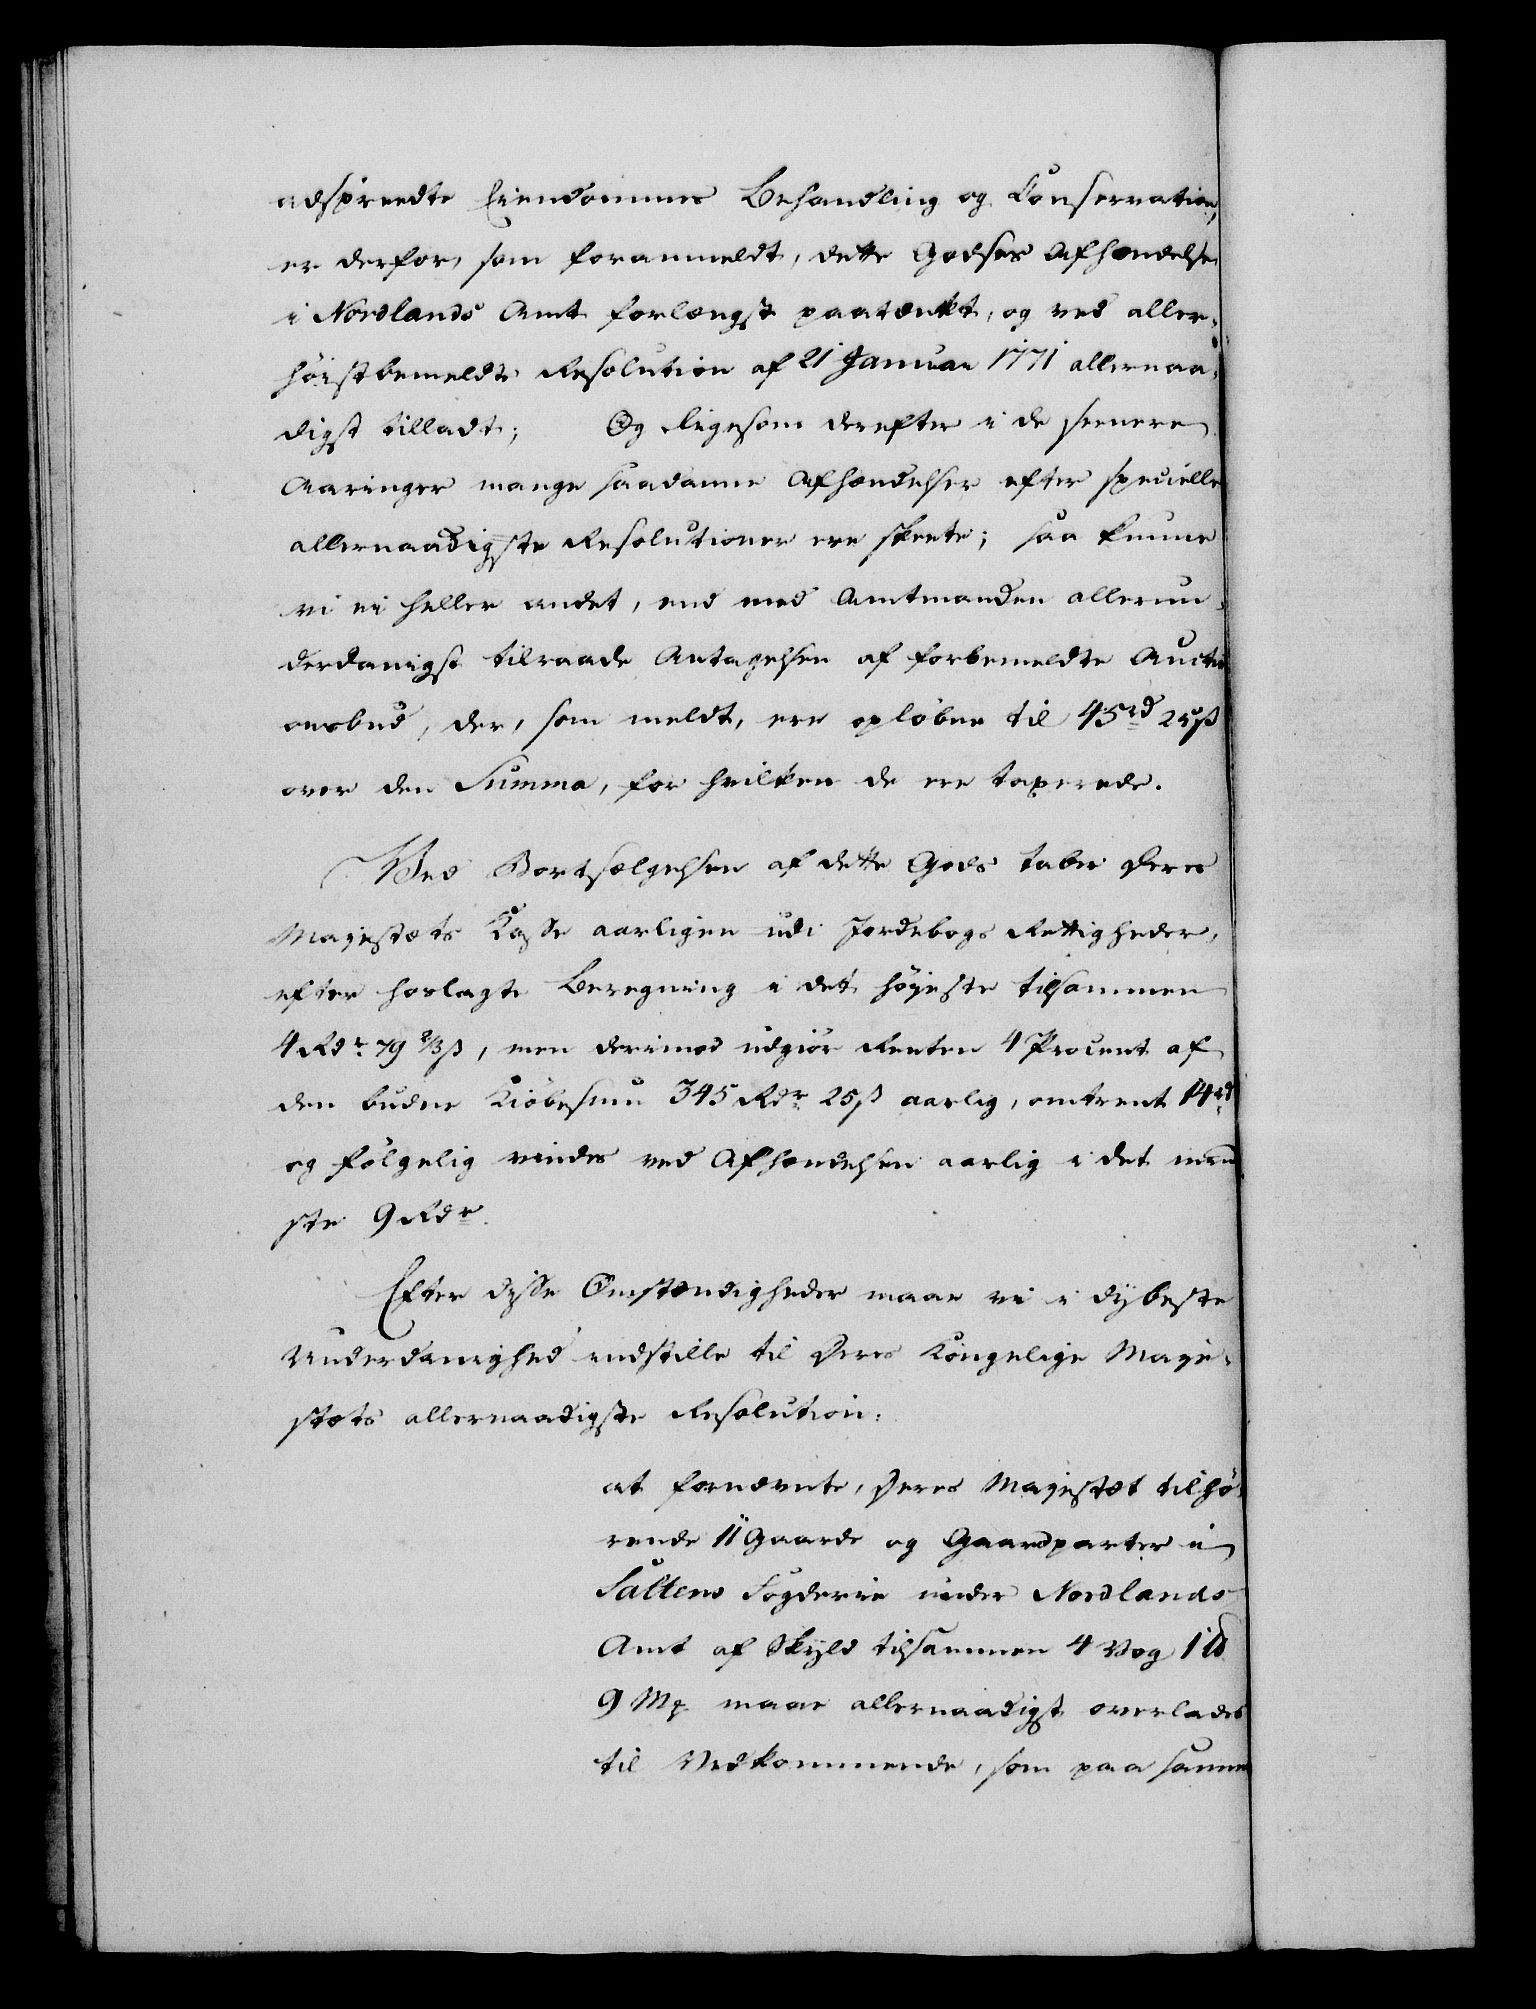 adspreedte Eiendommes Behandling og Conservation,
er derfor, som foranmeldt, dette Godses Afhændelse
i Nordlands Amt forlængst paatænkt, og ved aller-
høistbemeldte Resolution af 21 Januar 1771 allernaa-
digst tilladt; Og ligesom derefter i de seenere
Aaringer mange saadanne Afhændelser efter specielle
allernaadigste Resolutioner ere skeete; saa kunne
vi ei heller andet, end med Amtmanden allerun-
derdanigst tilraade Antagelsen af forbemeldte Aucti
onsbud, der, som meldt, ere opløbne til 45rd 25ß
over den Summa, for hvilken de ere taxerede.
Ved Bortsælgelsen af dette Gods taber Deres
Majestæts Kasse aarligen udi Jordebogs Rettigheder,
efter hoslagte Beregning i det høyeste tilsammen
4 Rdr 79 2/3 ß, men derimod udgiør Renten 4 Procent af
den budne Kiøbesum 345 Rdr 25ß aarlig, omtrent 14rd
og følgelig vindes ved Afhændelsen aarlig i det mind
ste 9 Rdr.
Efter disse Omstændigheder maae vi i dybeste
Underdanighed indstille til Deres Kongelige Maje-
stæts allernaadigste Resolution:
at fornævnte, Deres Majestæt tilhø-
rende 11 Gaarde og Gaardparter i
Saltens Fogderie under Nordlands
Amt af Skyld tilsammen 4 Vog 1 ℔
9 Mk maae allernaadigst overlades
til Vedkommende, som paa samme